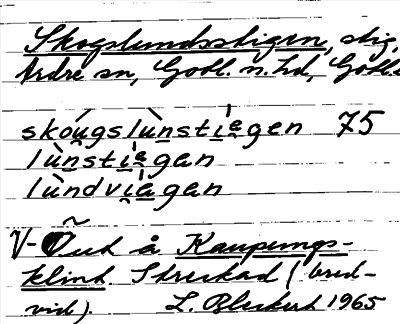 Skogslundsstigen, stig,
Ardre sn, Gotl. n. hd, Gotl.
skóugslùnsti̯egen 75
lùnsti̯egan
lùndvi̯agan
V- Öut å Kaupungs-
klint. Streckad (bred-
vid). L. Bleckert 1965